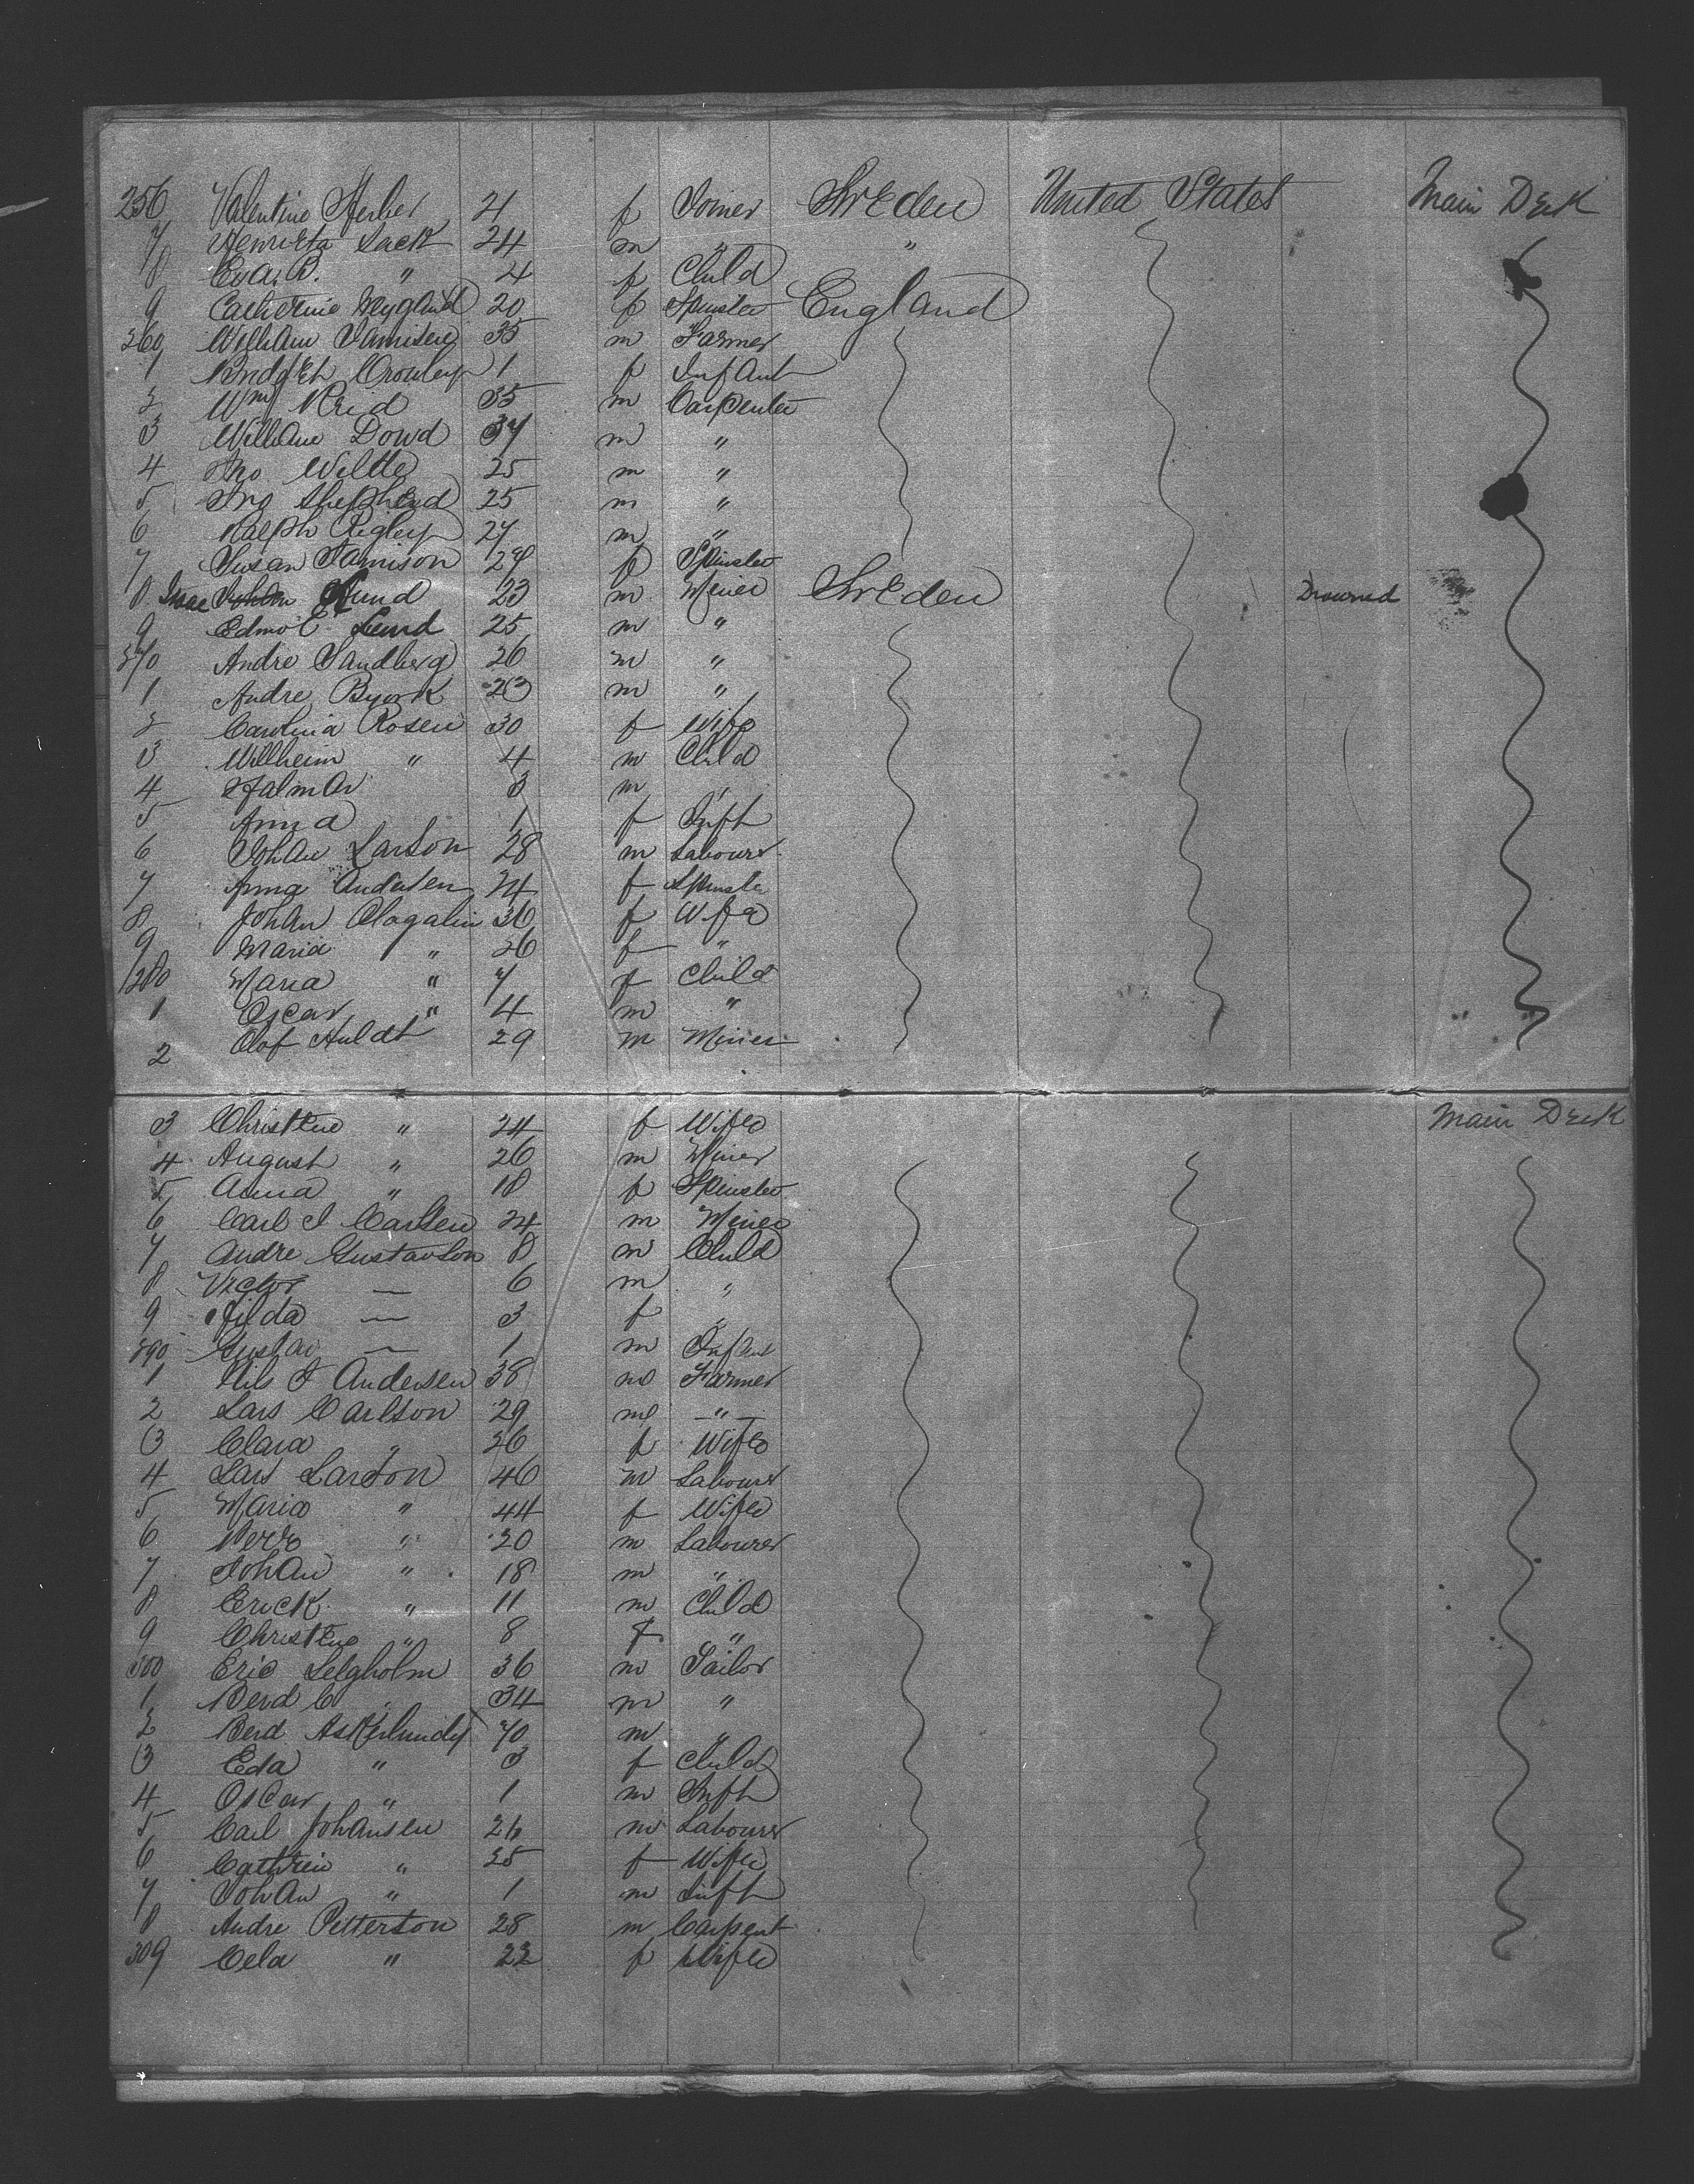 256 Valentine Herber 21 f Joiner Sweden United States Main Deck
7 Henrieta Lack 24 m " "
8 Eva B. " 4 f Child
9 Catherine 20 f Spinster England
260 William Jamison 35 m Farmer
1 Bridget Crowley 1 f Infant
2 Wm Reid 35 m Carpenter
3 William Dowd 37 m "
4 Jno Wiltte 25 m "
5 Jno Shepherd 25 m "
6 Ralph Rigley 27 m "
7 Susan Jamison 24 f Spinster
8 Isac Lund 23 m Miner Sweden Drowned
9 Edmo E Lund 25 m "
270 Andre Sandberg 26 m "
1 Andre Byork 23 m "
2 Carolina Rosen 30 f Wife
3 Willheim " 4 m Child
4 Halmar 3 m "
5 Anna 1 f Inft
6 Johan Larson 28 m Labourr
7 Anna Andersen 24 f Spinster
8 Johan 36 f Wife
9 Maria " 26 f "
280 Maria " 7 f Child
1 Oscar " 4 m "
2 Olof Huldt 29 m Miner
3 Christine " 24 f Wife Main Deck
4 August " 26 m Miner
5 Anna " 18 f Spinster
6 Carl J Carlsen 24 m Miner
7 Andre Gustavson 8 m Child
8 Victor — 6 m "
9 Hilda — 3 f "
290 Gustav — 1 m Infant
1 Nils J Andersen 38 m Farmer
2 Lars Carlson 29 m "
3 Clara " 26 f Wife
4 Lars Larson 46 m Labourr
5 Maria " 44 f Wife
6 " 20 m Labourer
7 Johan " 18 m "
8 Erick " 11 m Child
9 Christine " 8 f "
300 Eric Lelgholm 36 m Tailor
1 Berd C " 34 m "
2 Berd Askerlundy 40 m "
3 Eda " 3 f Child
4 Oscar " 1 m Inft
5 Carl Johansen 26 m Labourer
6 Cathrein " 25 f Wife
7 Johan " 1 m Inft
8 Andre Petterson 28 m Carpent
309 Cela " 22 f Wife